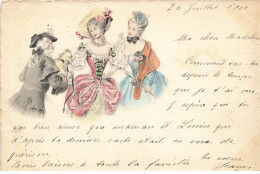 26 Juillet 1900
Ma chère Madeleine
Comment vas-tu
depuis le temps
que je t'ai vue
J'espère que tu
vas bien ainsi que maman et Louise que
d'après ta dernière carte était en voie de
guérison.
Mons baisers à toute la famille